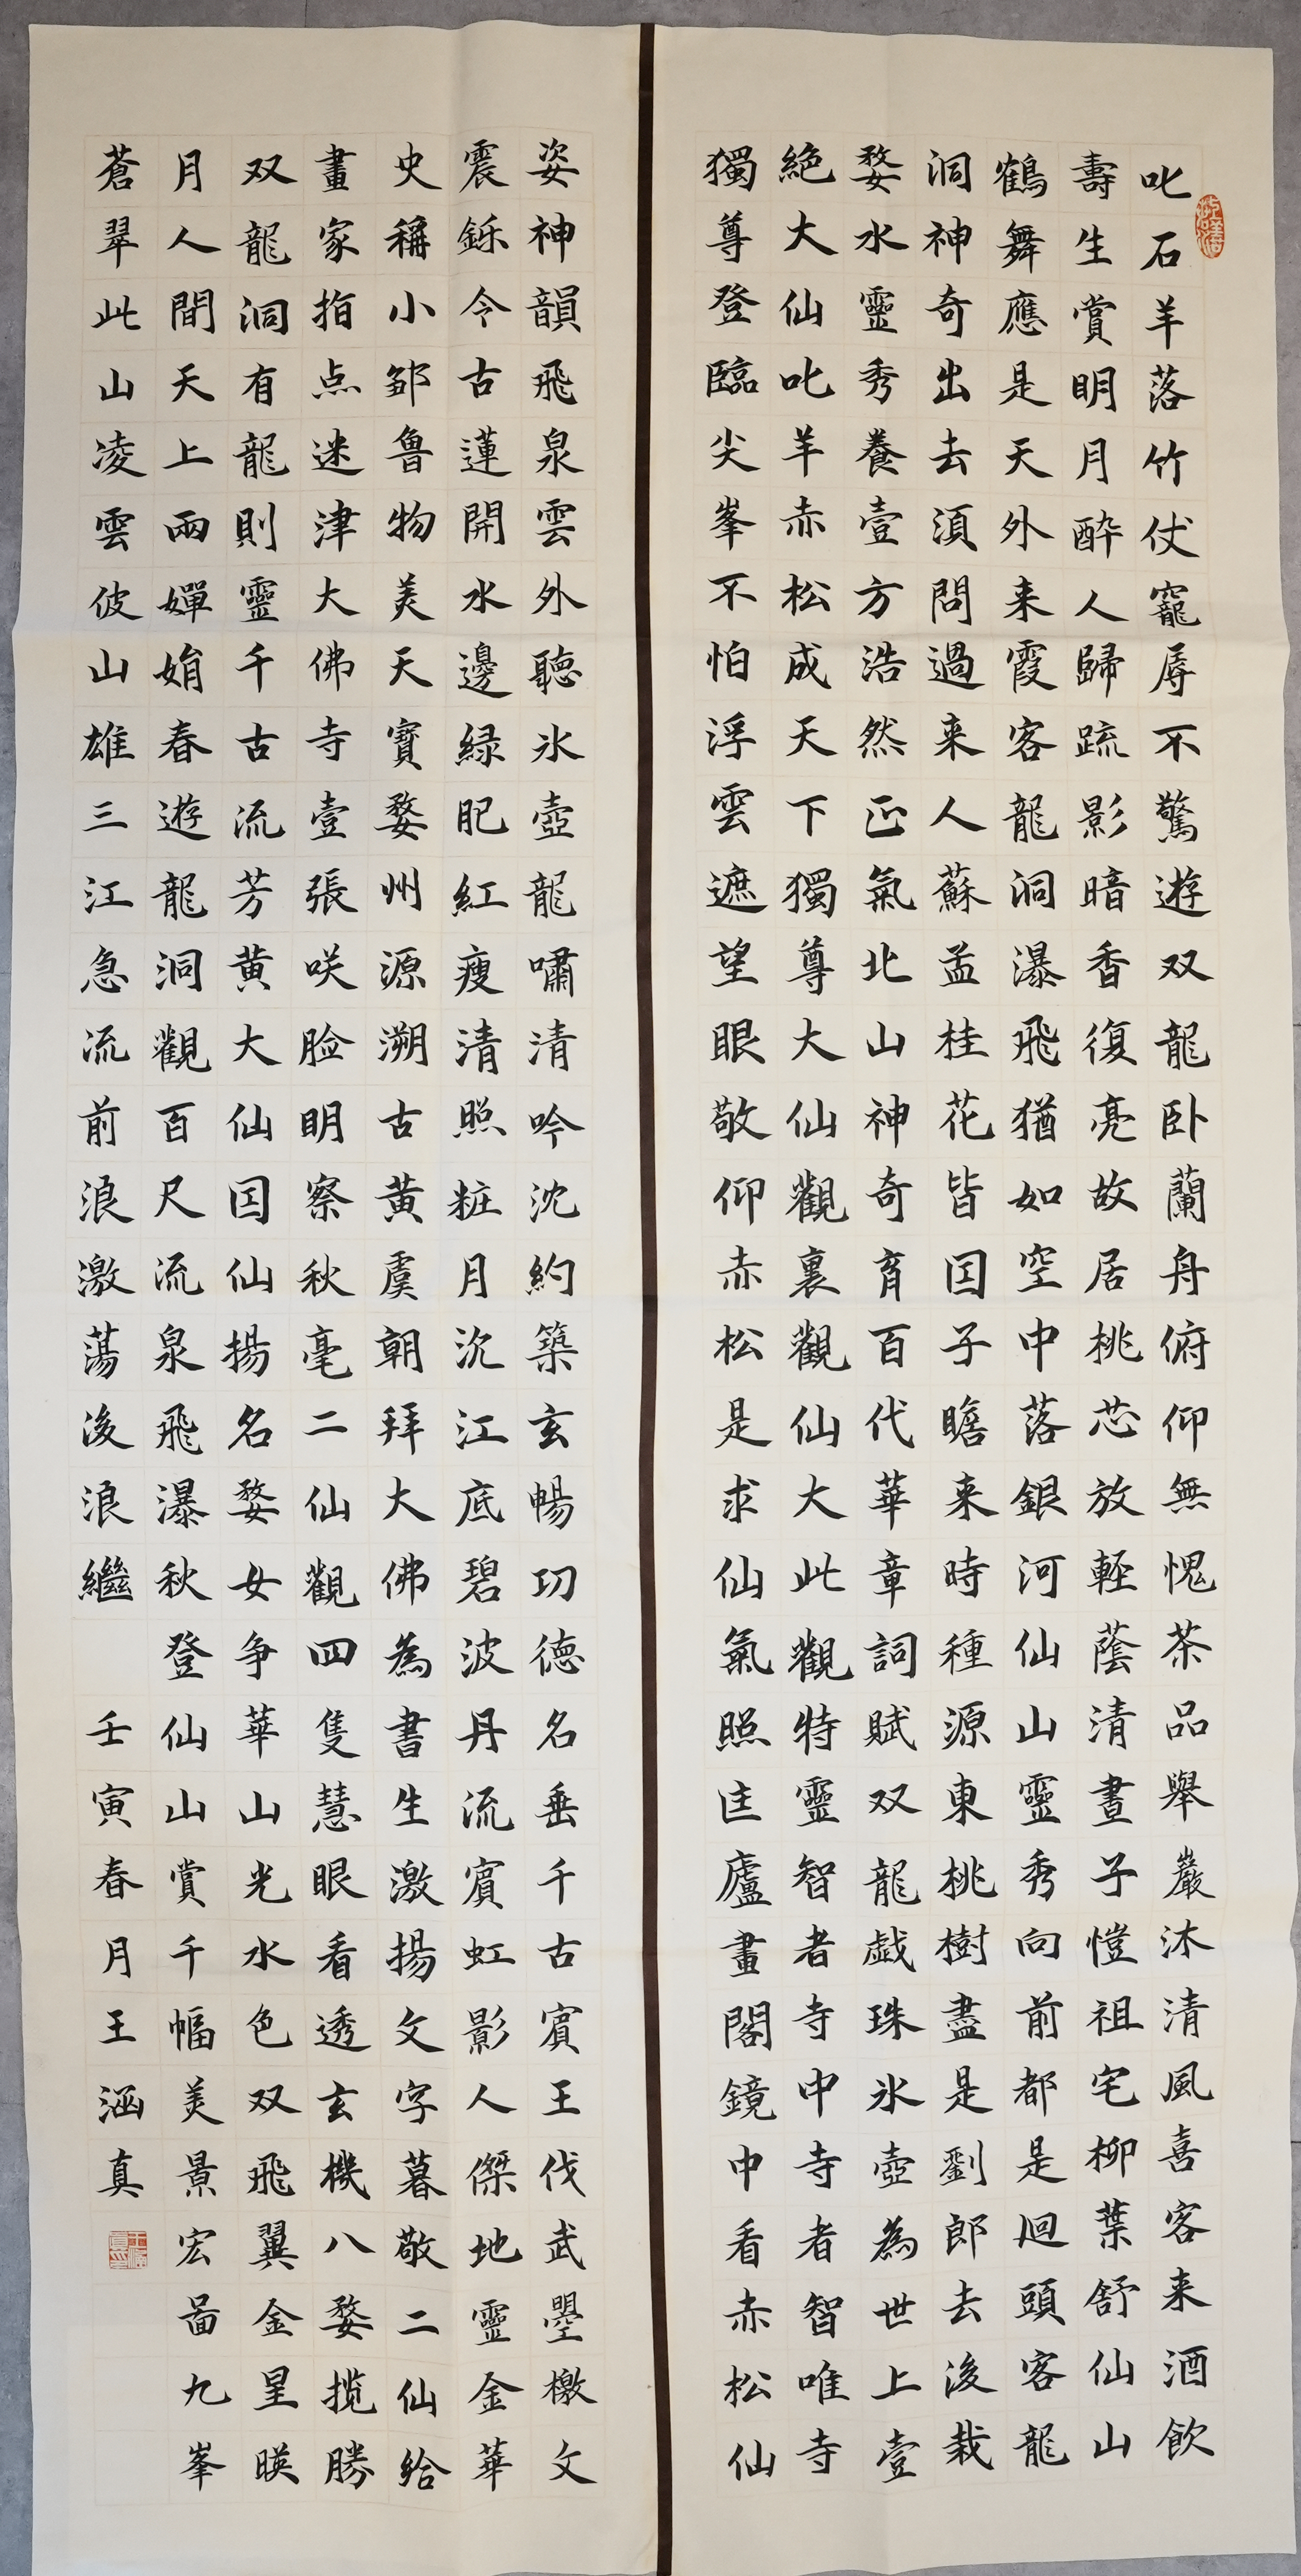 叱石羊落竹仗寵辱不驚遊双龍卧蘭舟俯仰無愧茶品舉巖沐清風喜客来酒飲
壽生賞明月酔人歸䟽影暗香復亮故居桃芯放輕蔭清晝子愷祖宅柳葉舒仙山
鶴舞應是天外来霞客龍洞瀑飛猶如空中落銀河仙山靈秀向前都是迴頭客龍
洞神奇出去須問過来人蘇孟桂花皆因子瞻来時種源東桃樹盡是劉郎去後栽
婺水靈秀養壹方浩然正氣北山神奇育百代華章詞賦双龍戯珠氷壺為世上壹
絶大仙叱羊赤松成天下獨尊大仙觀裏觀仙大此觀特靈智者寺中寺者智唯寺
獨尊登臨尖峯不怕浮雲遮望眼敬仰赤松是求仙氣照匡廬畫閣鏡中看赤松仙
姿神韻飛泉雲外聴氷壺龍嘯清吟沈約築玄暢功德名垂千古賓王伐武曌檄文
震鑠今古蓮開水邊緑肥紅瘦清照粧月沉江底碧波丹流賓虹影人傑地靈金華
史稱小鄒魯物美天寶婺州源溯古黄虞朝拜大佛為書生激揚文字暮敬二仙給
畫家指点迷津大佛寺壹張咲脸明察秋毫二仙觀四隻慧眼看透玄機八婺揽勝
双龍洞有龍則靈千古流芳黄大仙因仙揚名婺女争華山光水色双飛翼金星暎
月人間天上兩嬋娟春遊龍洞觀百尺流泉飛瀑秋登仙山賞千幅美景宏啚九峯
蒼翠此山凌雲彼山雄三江急流前浪激蕩後浪繼
壬寅春月王涵真